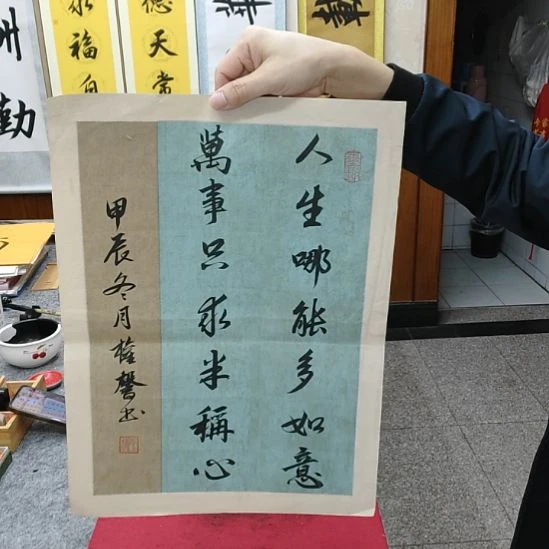 人生哪能多如意
萬事只求半稱心
甲辰冬月
書
永福自
德天常
州
勤